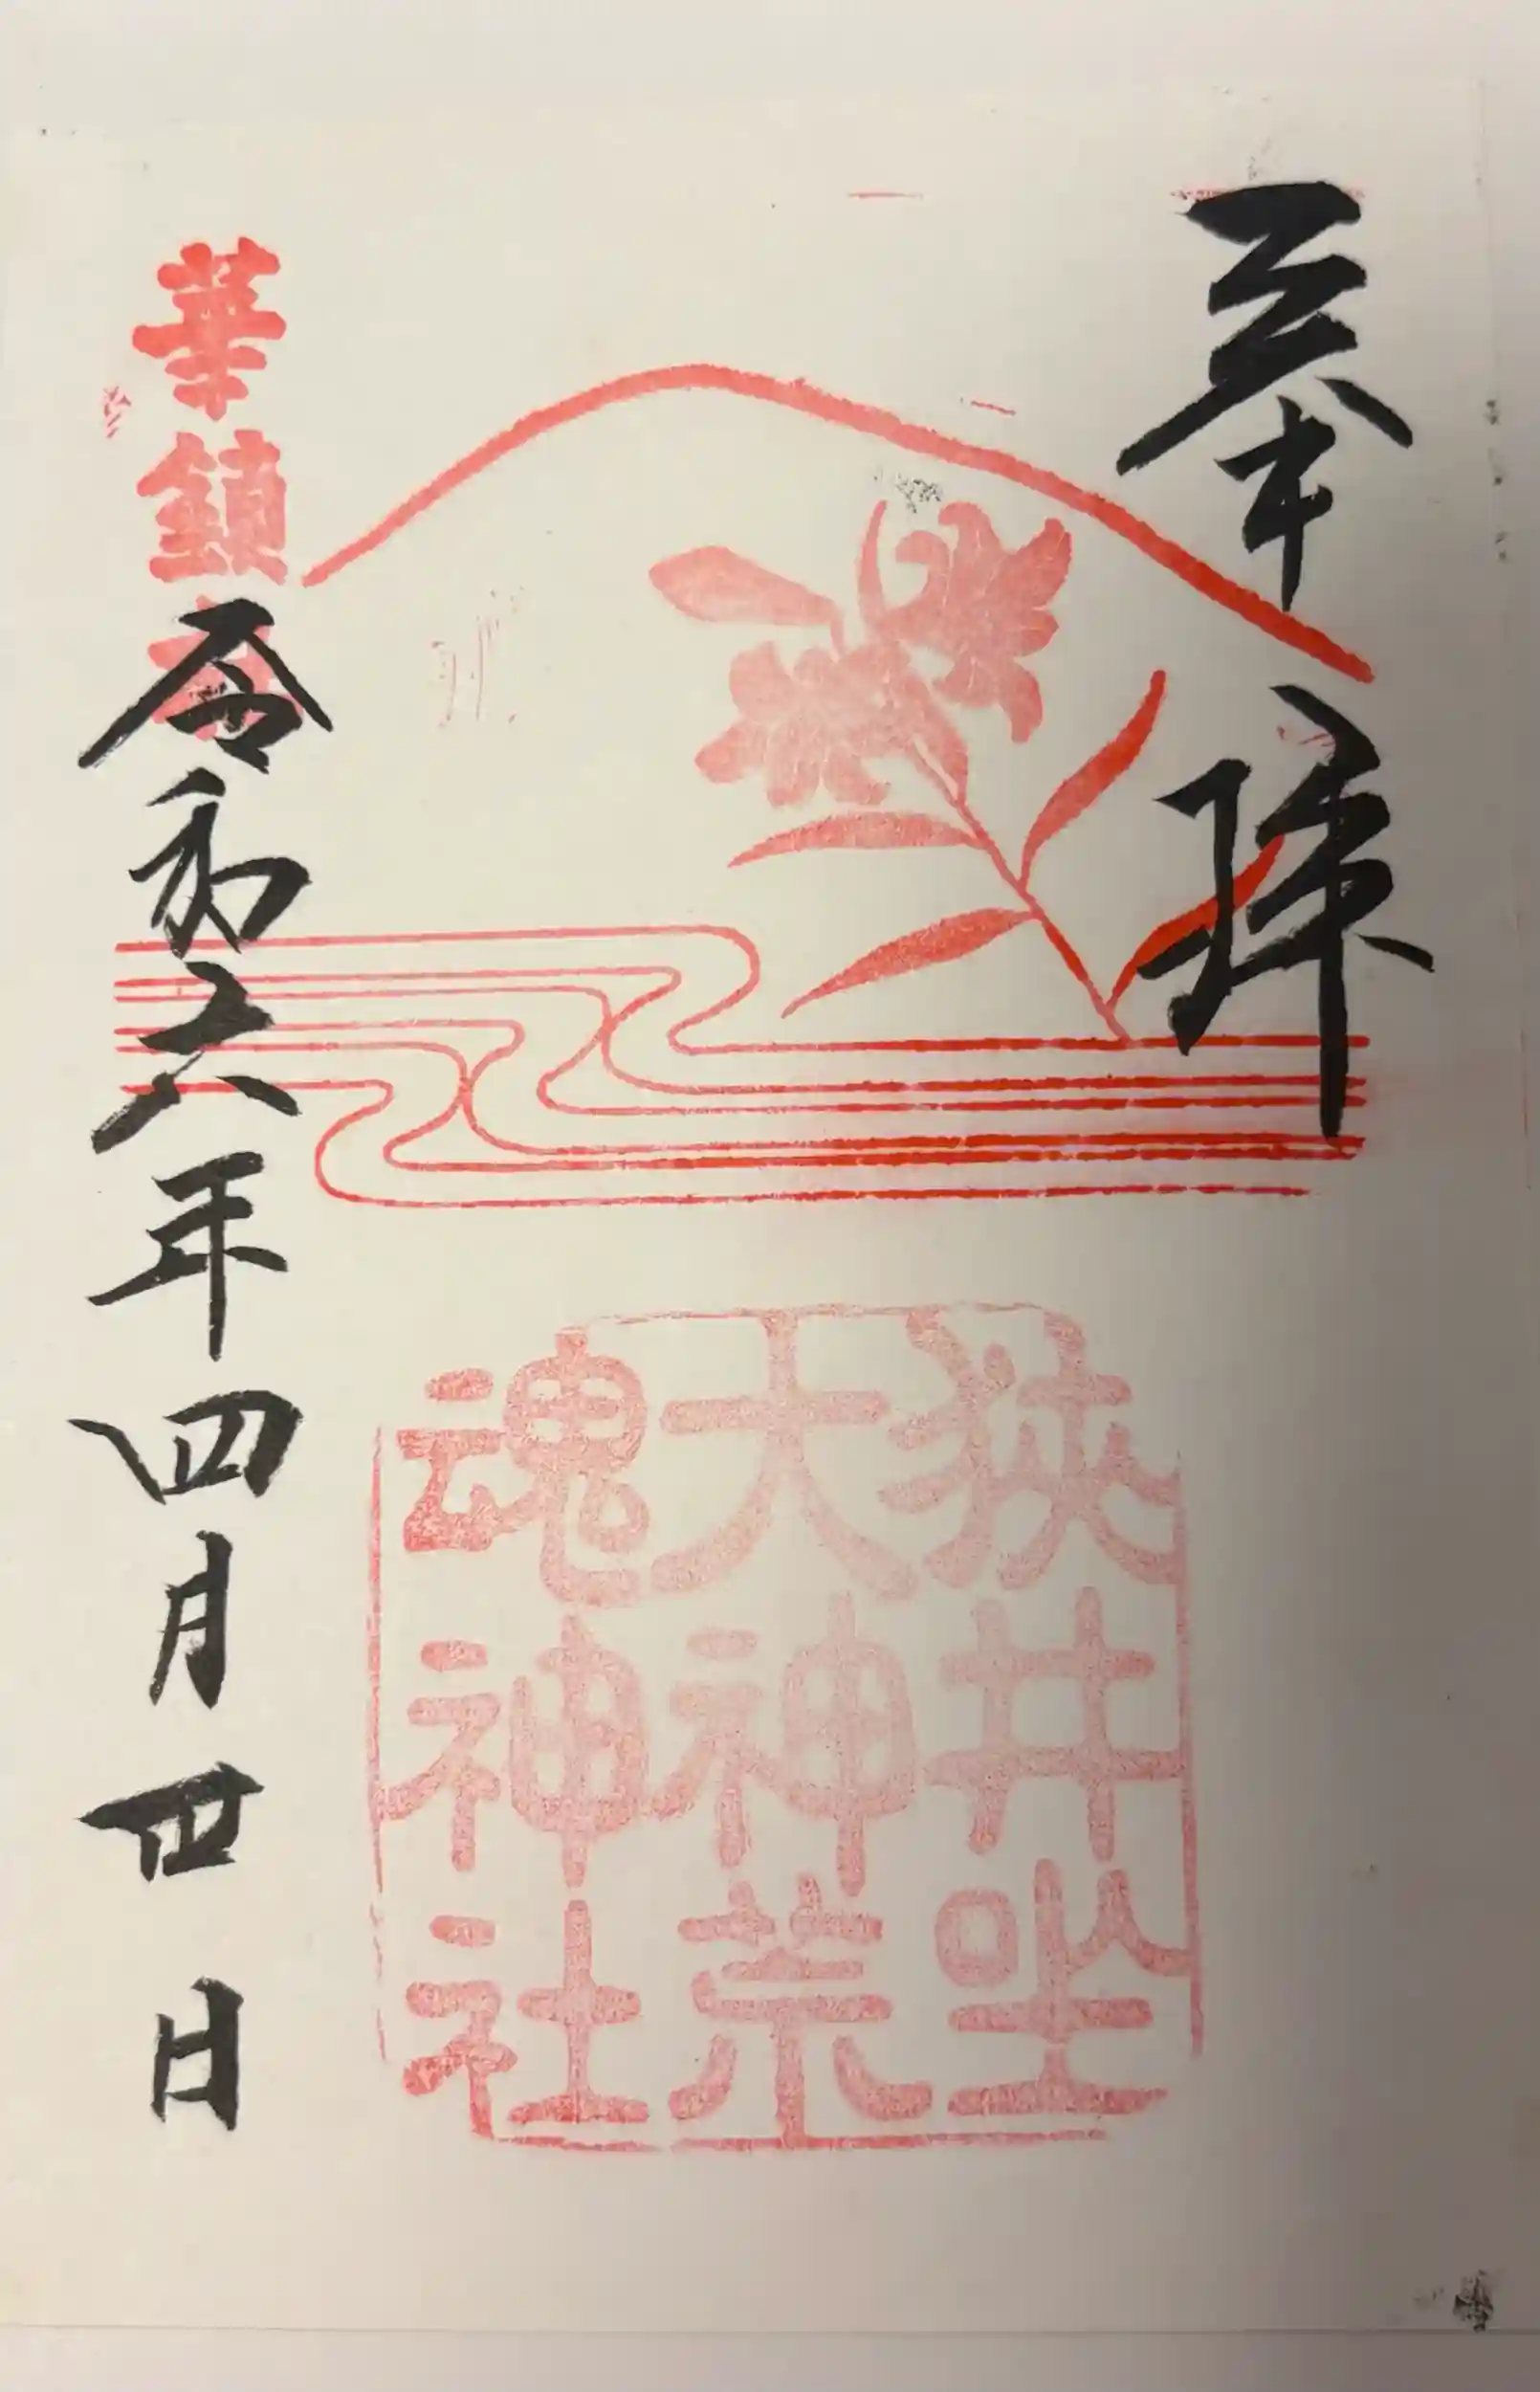 奉拝
狭井坐
大神荒
魂神社
華鎮社
令和六年四月四日